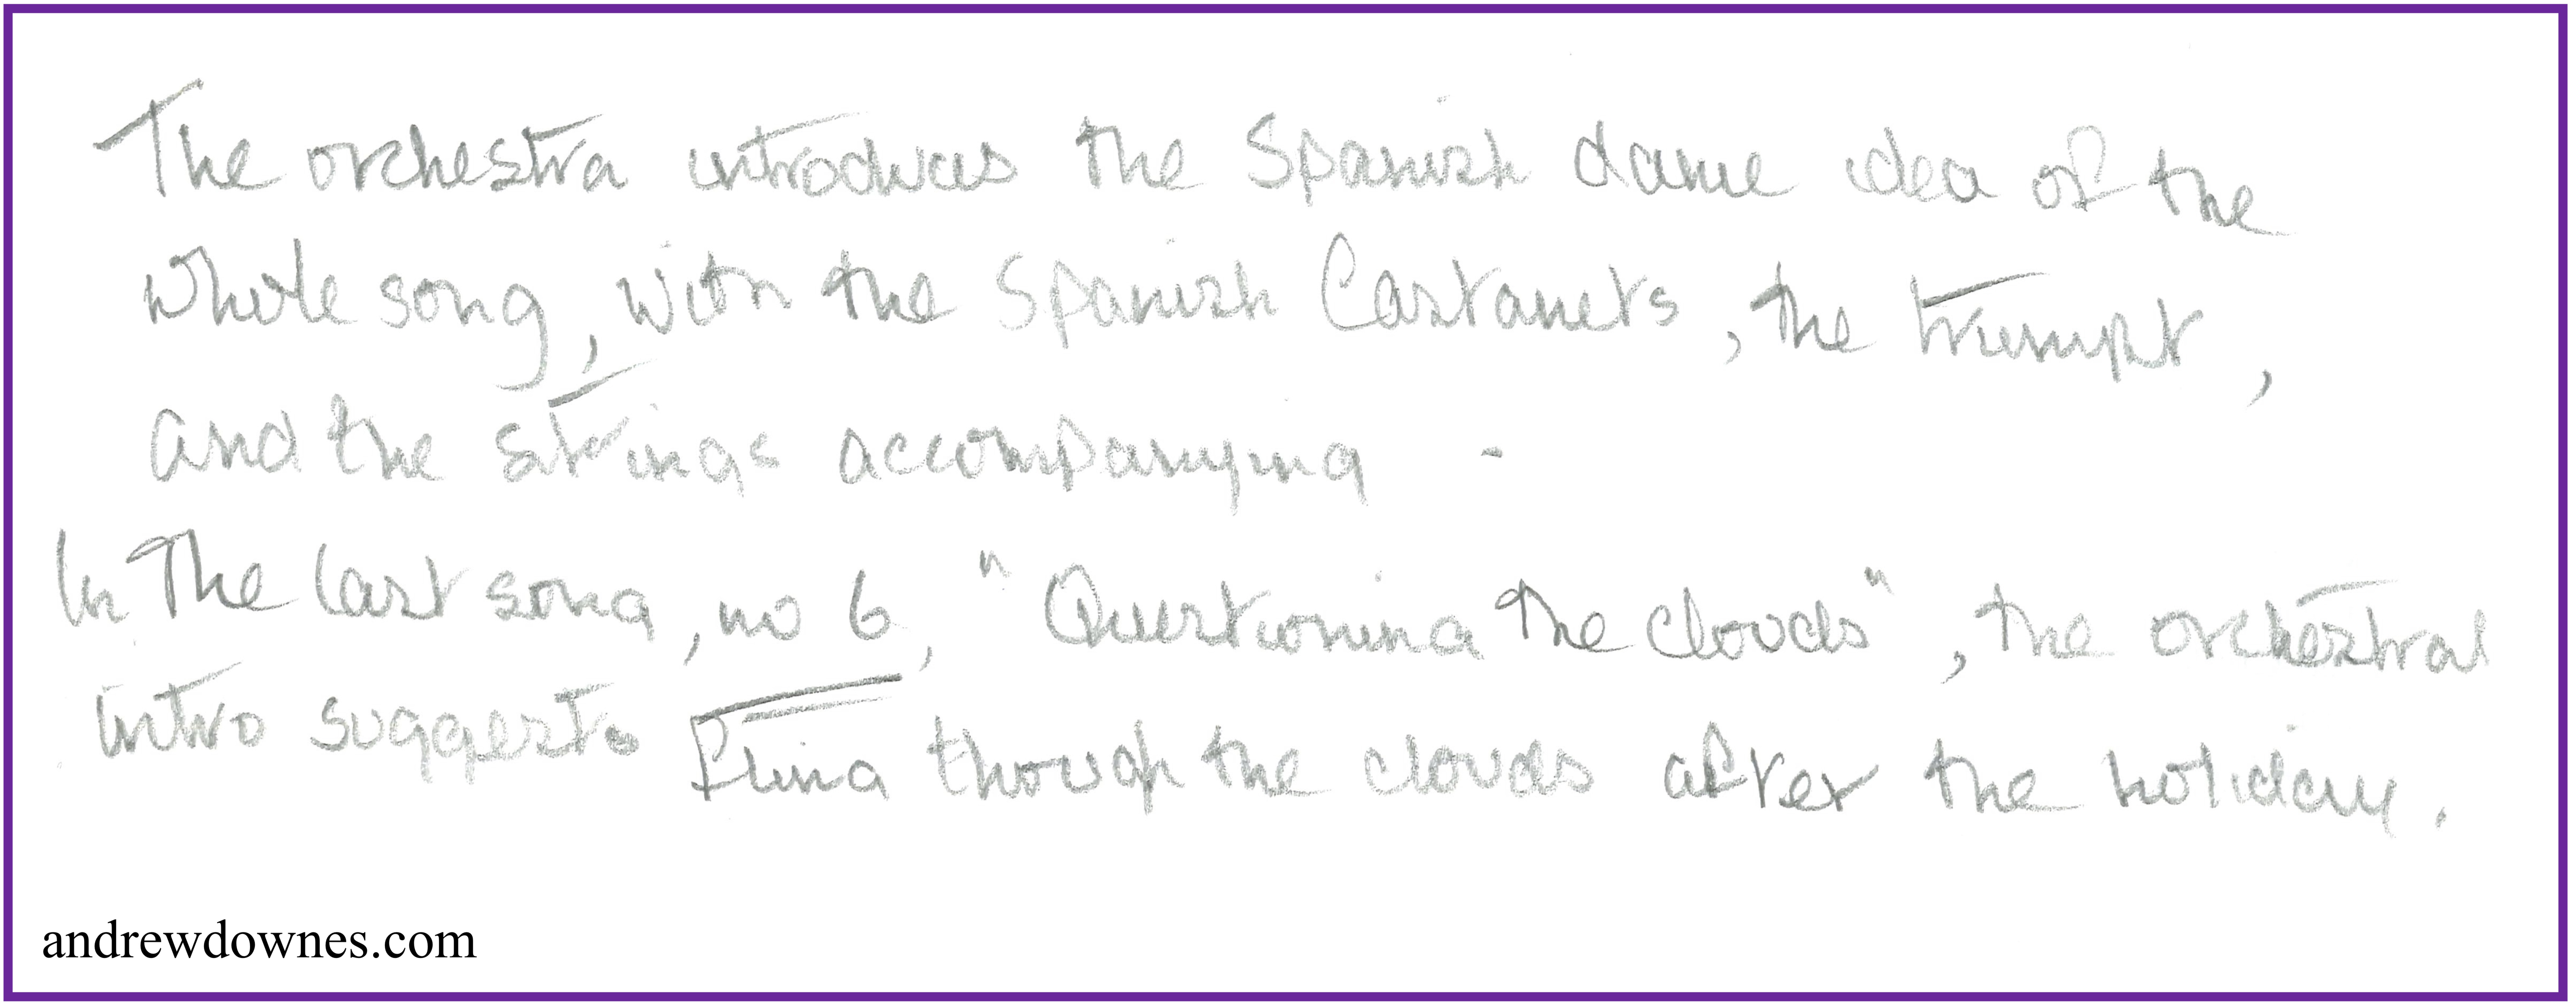 The orchestra introduces the Spanish dance idea of the
whole song, with the Spanish Castanets, the trumpt,
and the strings accompanying -
In the last song, no 6, "Questioning the clouds", the orchestral
intro suggests through the clouds after the holiday.
andrewdownes.com